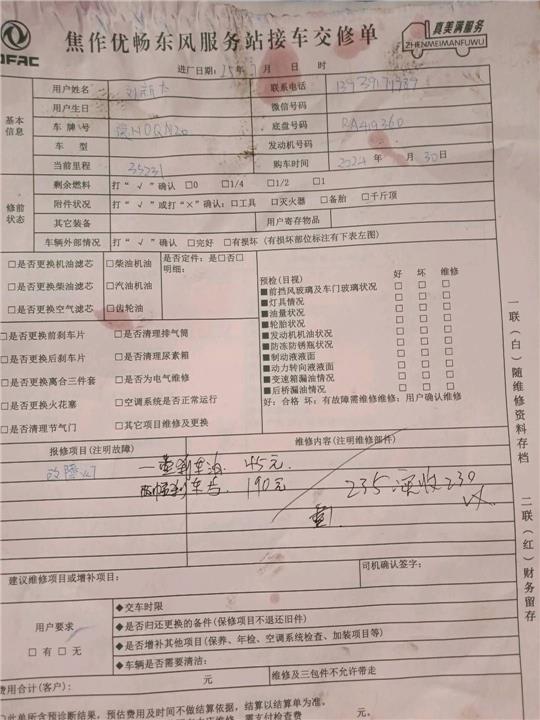 DFAC
焦作优畅东风服务站接车交修单
真美满服务
ZHENMEIMANFUWU
进厂日期: 25年 月 日 时
基本信息
用户姓名 联系电话
用户生日 微信号码
车牌号 底盘号码
车型 发动机号码
当前里程 35231 购车时间 2024年 月30日
修前状态
剩余燃料 打“√”确认 □0 □1/4 □1/2 □1
附件状况 打“√”或打“×”确认: □工具 □灭火器 □备胎 □千斤顶
其它装备 用户寄存物品
车辆外部情况 打“√”确认 □完好 □有损坏 (有损坏部位标注有下表左图)
□是否更换机油滤芯 □柴油机油 是否定件: 是□否□
明细:
□是否更换柴油滤芯 □汽油机油
□是否更换空气滤芯 □齿轮油
预检(目视) 好 坏 维修
■前挡风玻璃及车门玻璃状况 □ □ □
■灯具情况 □ □ □
■油量状况 □ □ □
■轮胎状况 □ □ □
■发动机机油状况 □ □ □
■防冻防锈瓶状况 □ □ □
■制动液液面 □ □ □
■动力转向液液面 □ □ □
■变速箱漏油情况 □ □ □
■后桥漏油情况 □ □ □
好: 合格 坏: 有故障需维修维修: 用户确认维修
□是否更换前刹车片 □是否清理排气筒
□是否更换后刹车片 □是否清理尿素箱
□是否更换离合三件套 □是否为电气维修
□是否更换火花塞 □空调系统是否正常运行
□是否清理节气门 □其它项目维修及更换
报修项目(注明故障) 维修内容(注明维修部件)
故障灯 刹车油 45元
190元
235 实收230
建议维修项目或增补项目: 司机确认签字:
用户要求
□有□无
◆交车时限
◆是否归还更换的备件(保修项目不退还旧件)
◆是否增补其他项目(保养、年检、空调系统检查、加装项目等)
◆车辆是否需要清洁:
费用合计(客户): 元 维修及三包件不允许带走
□此单所含预诊断结果, 预估费用及时间不做结算依据, 结算以结算单为准。
需支付检查费 元。
一联(白)随维修资料存档
二联(红)财务留存